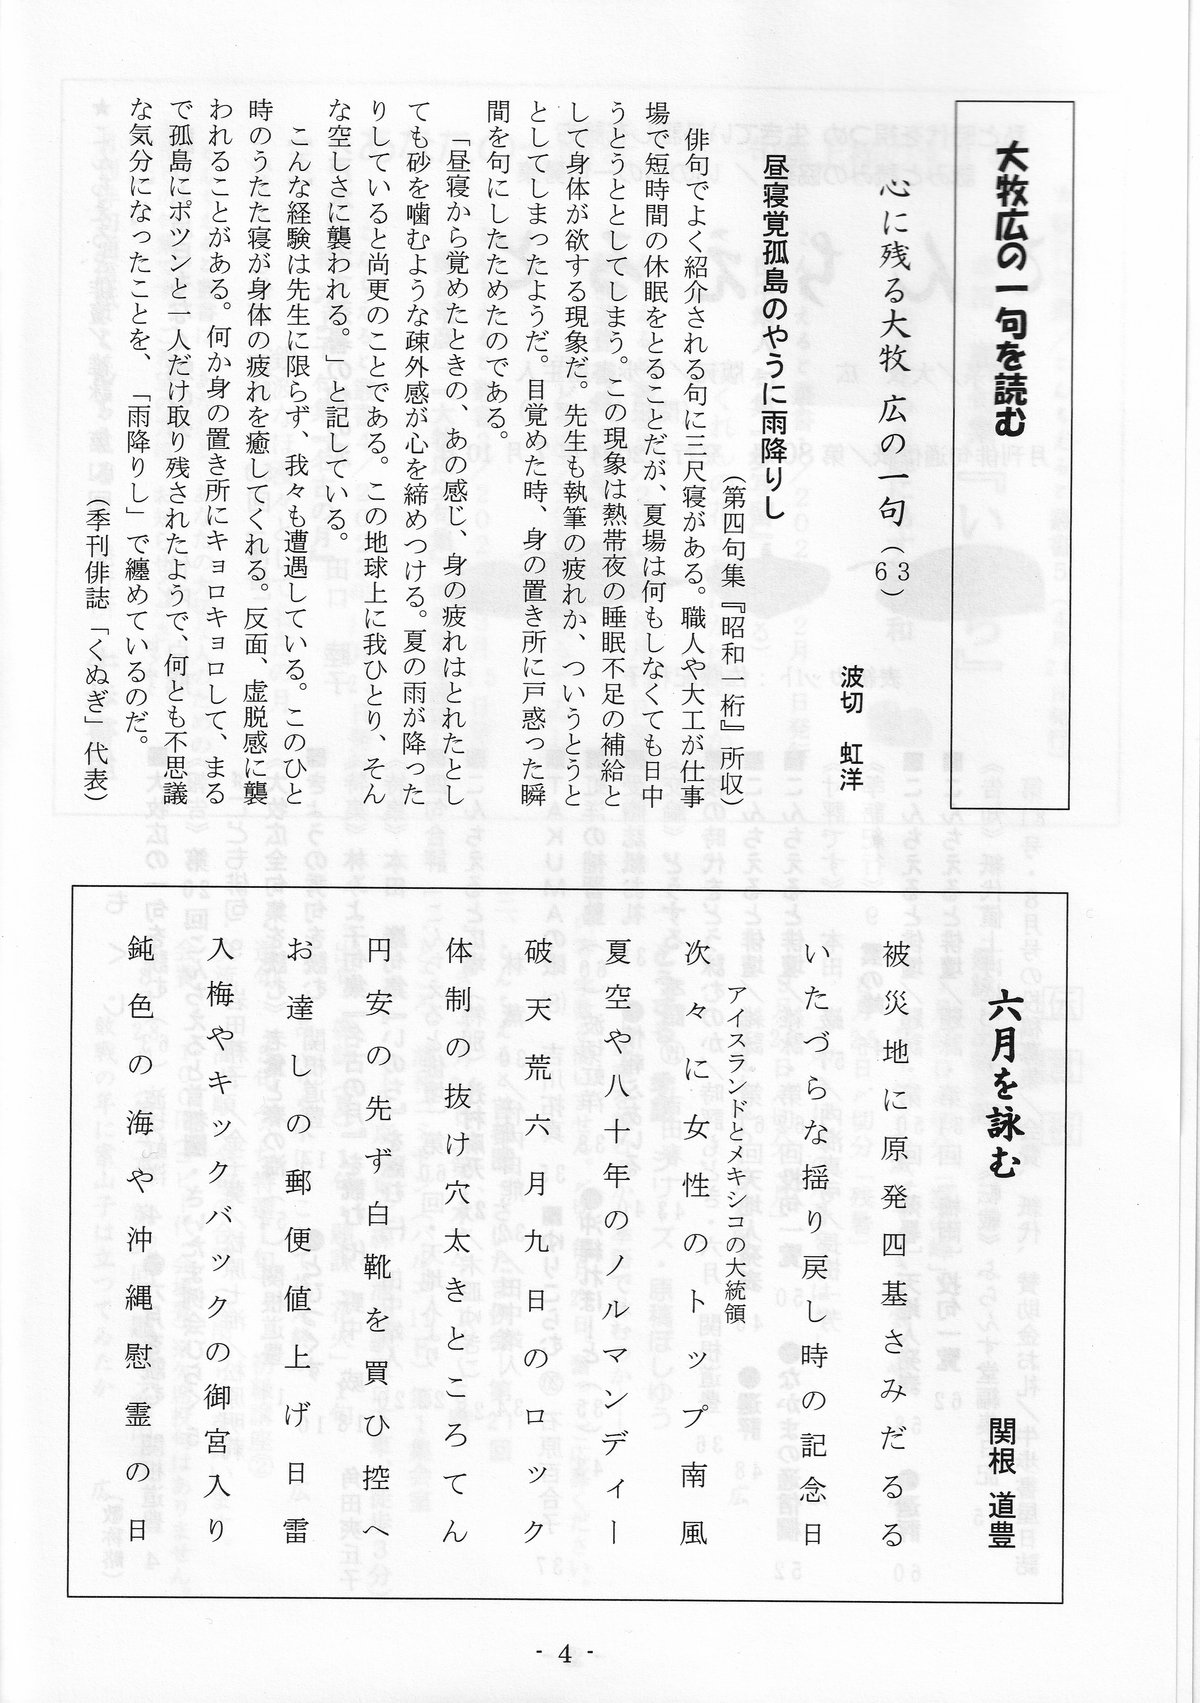 大牧広の一句を読む
心に残る大牧 広の一句（63）
波切　虹洋
昼寝覚孤島のやうに雨降りし
（第四句集『昭和一桁』所収）
俳句でよく紹介される句に三尺寝がある。職人や大工が仕事
場で短時間の休眠をとることだが、夏場は何もしなくても日中
うとうととしてしまう。この現象は熱帯夜の睡眠不足の補給と
して身体が欲する現象だ。先生も執筆の疲れか、ついうとうと
としてしまったようだ。目覚めた時、身の置き所に戸惑った瞬
間を句にしたためたのである。
「昼寝から覚めたときの、あの感じ、身の疲れはとれたとし
ても砂を噛むような疎外感が心を締めつける。夏の雨が降った
りしていると尚更のことである。この地球上に我ひとり、そん
な空しさに襲われる。」と記している。
こんな経験は先生に限らず、我々も遭遇している。このひと
時のうたた寝が身体の疲れを癒してくれる。反面、虚脱感に襲
われることがある。何か身の置き所にキョロキョロして、まる
で孤島にポツンと一人だけ取り残されたようで、何とも不思議
な気分になったことを、「雨降りし」で纏めているのだ。
（季刊俳誌「くぬぎ」代表）
六月を詠む
関根 道豊
被災地に原発四基さみだるる
いたづらな揺り戻し時の記念日
アイスランドとメキシコの大統領
次々に女性のトップ南風
夏空や八十年のノルマンディー
破天荒六月九日のロック
体制の抜け穴太きところてん
円安の先ず白靴を買ひ控へ
お達しの郵便値上げ日雷
入梅やキックバックの御宮入り
鈍色の海や沖縄慰霊の日
- 4 -